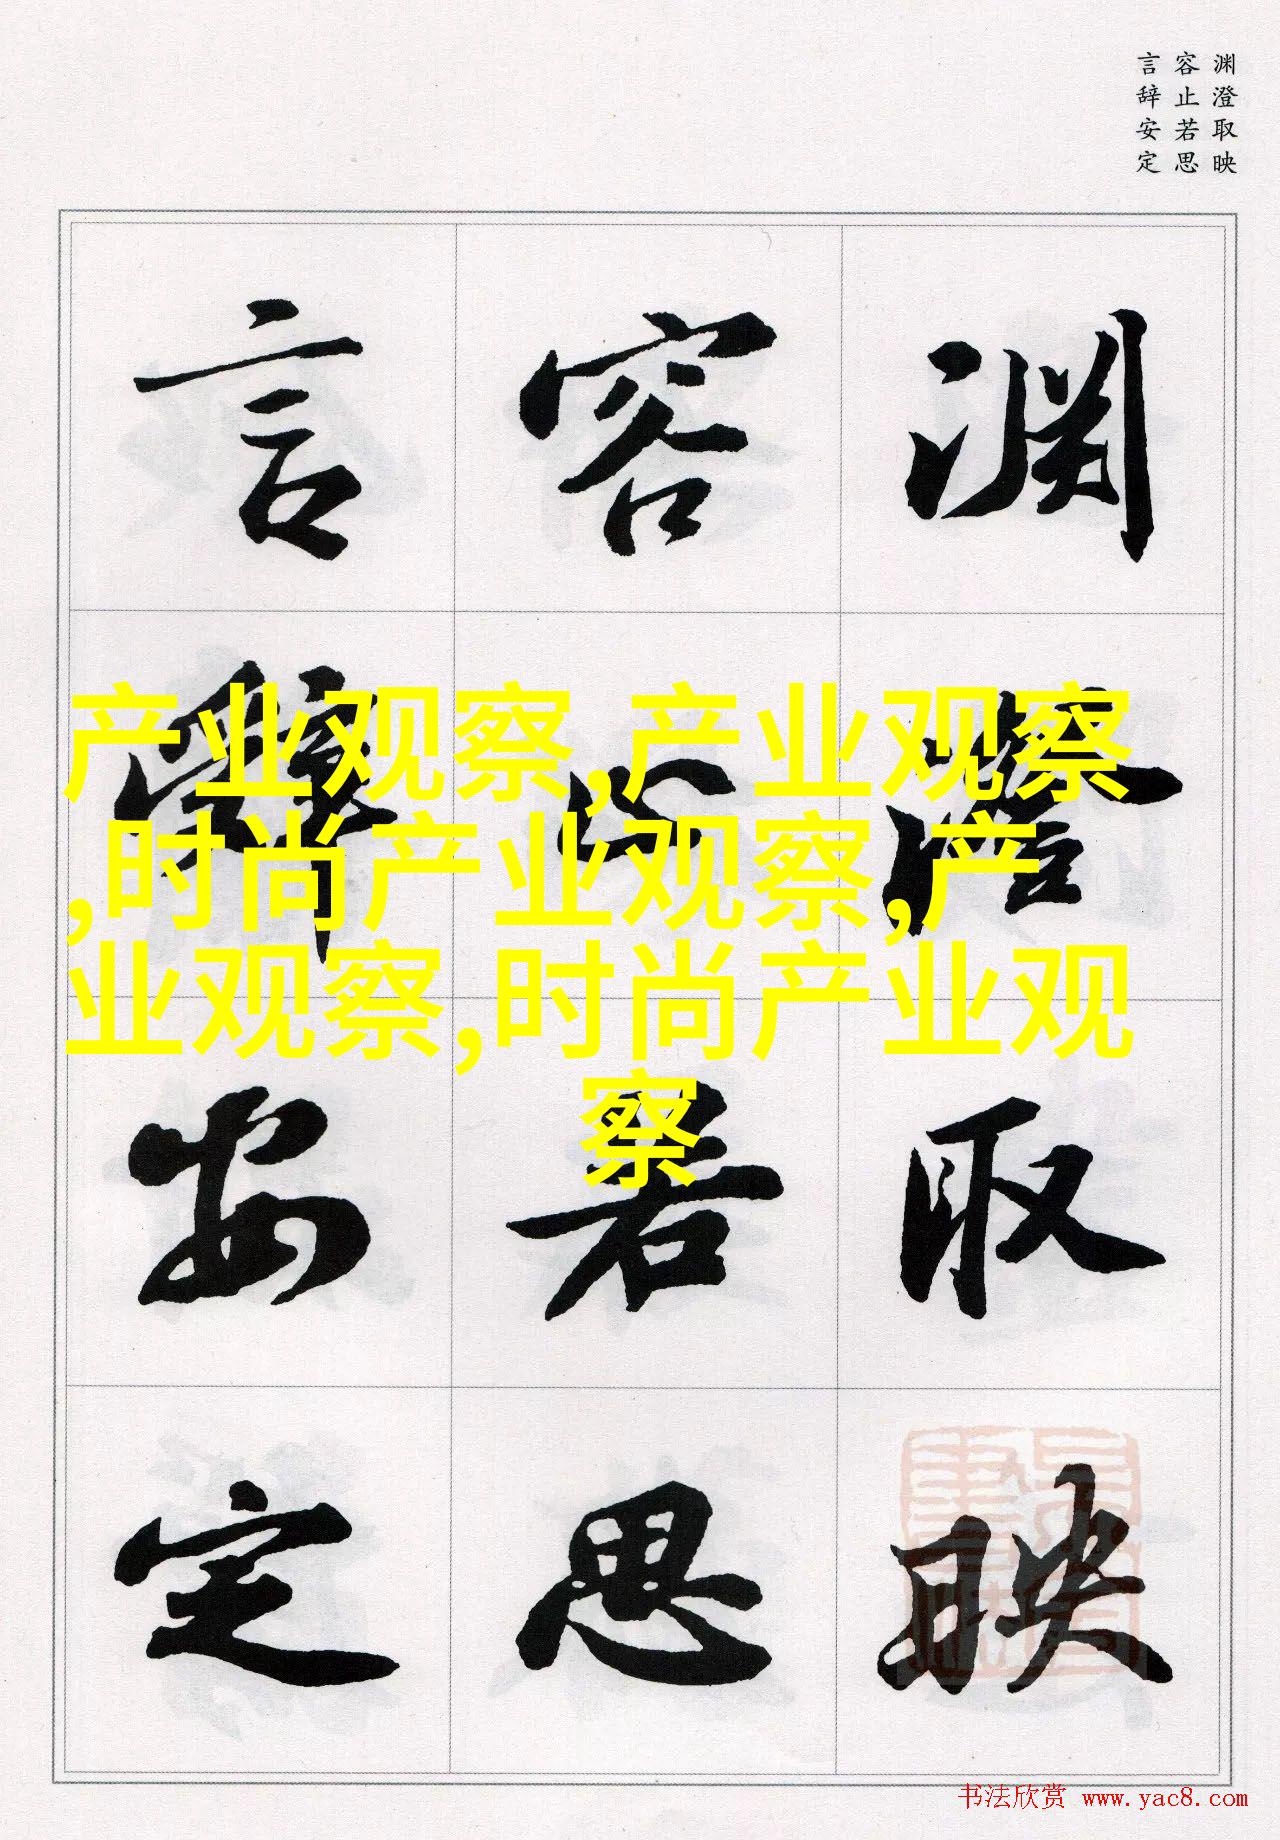 渊澄取映
容止若思
言辞安定
渊澄取映
容止若思
言辭安定
产业观察,产业观察
,时尚产业观察,产
业观察,时尚产业观
察
书法欣赏 www.yac8.com